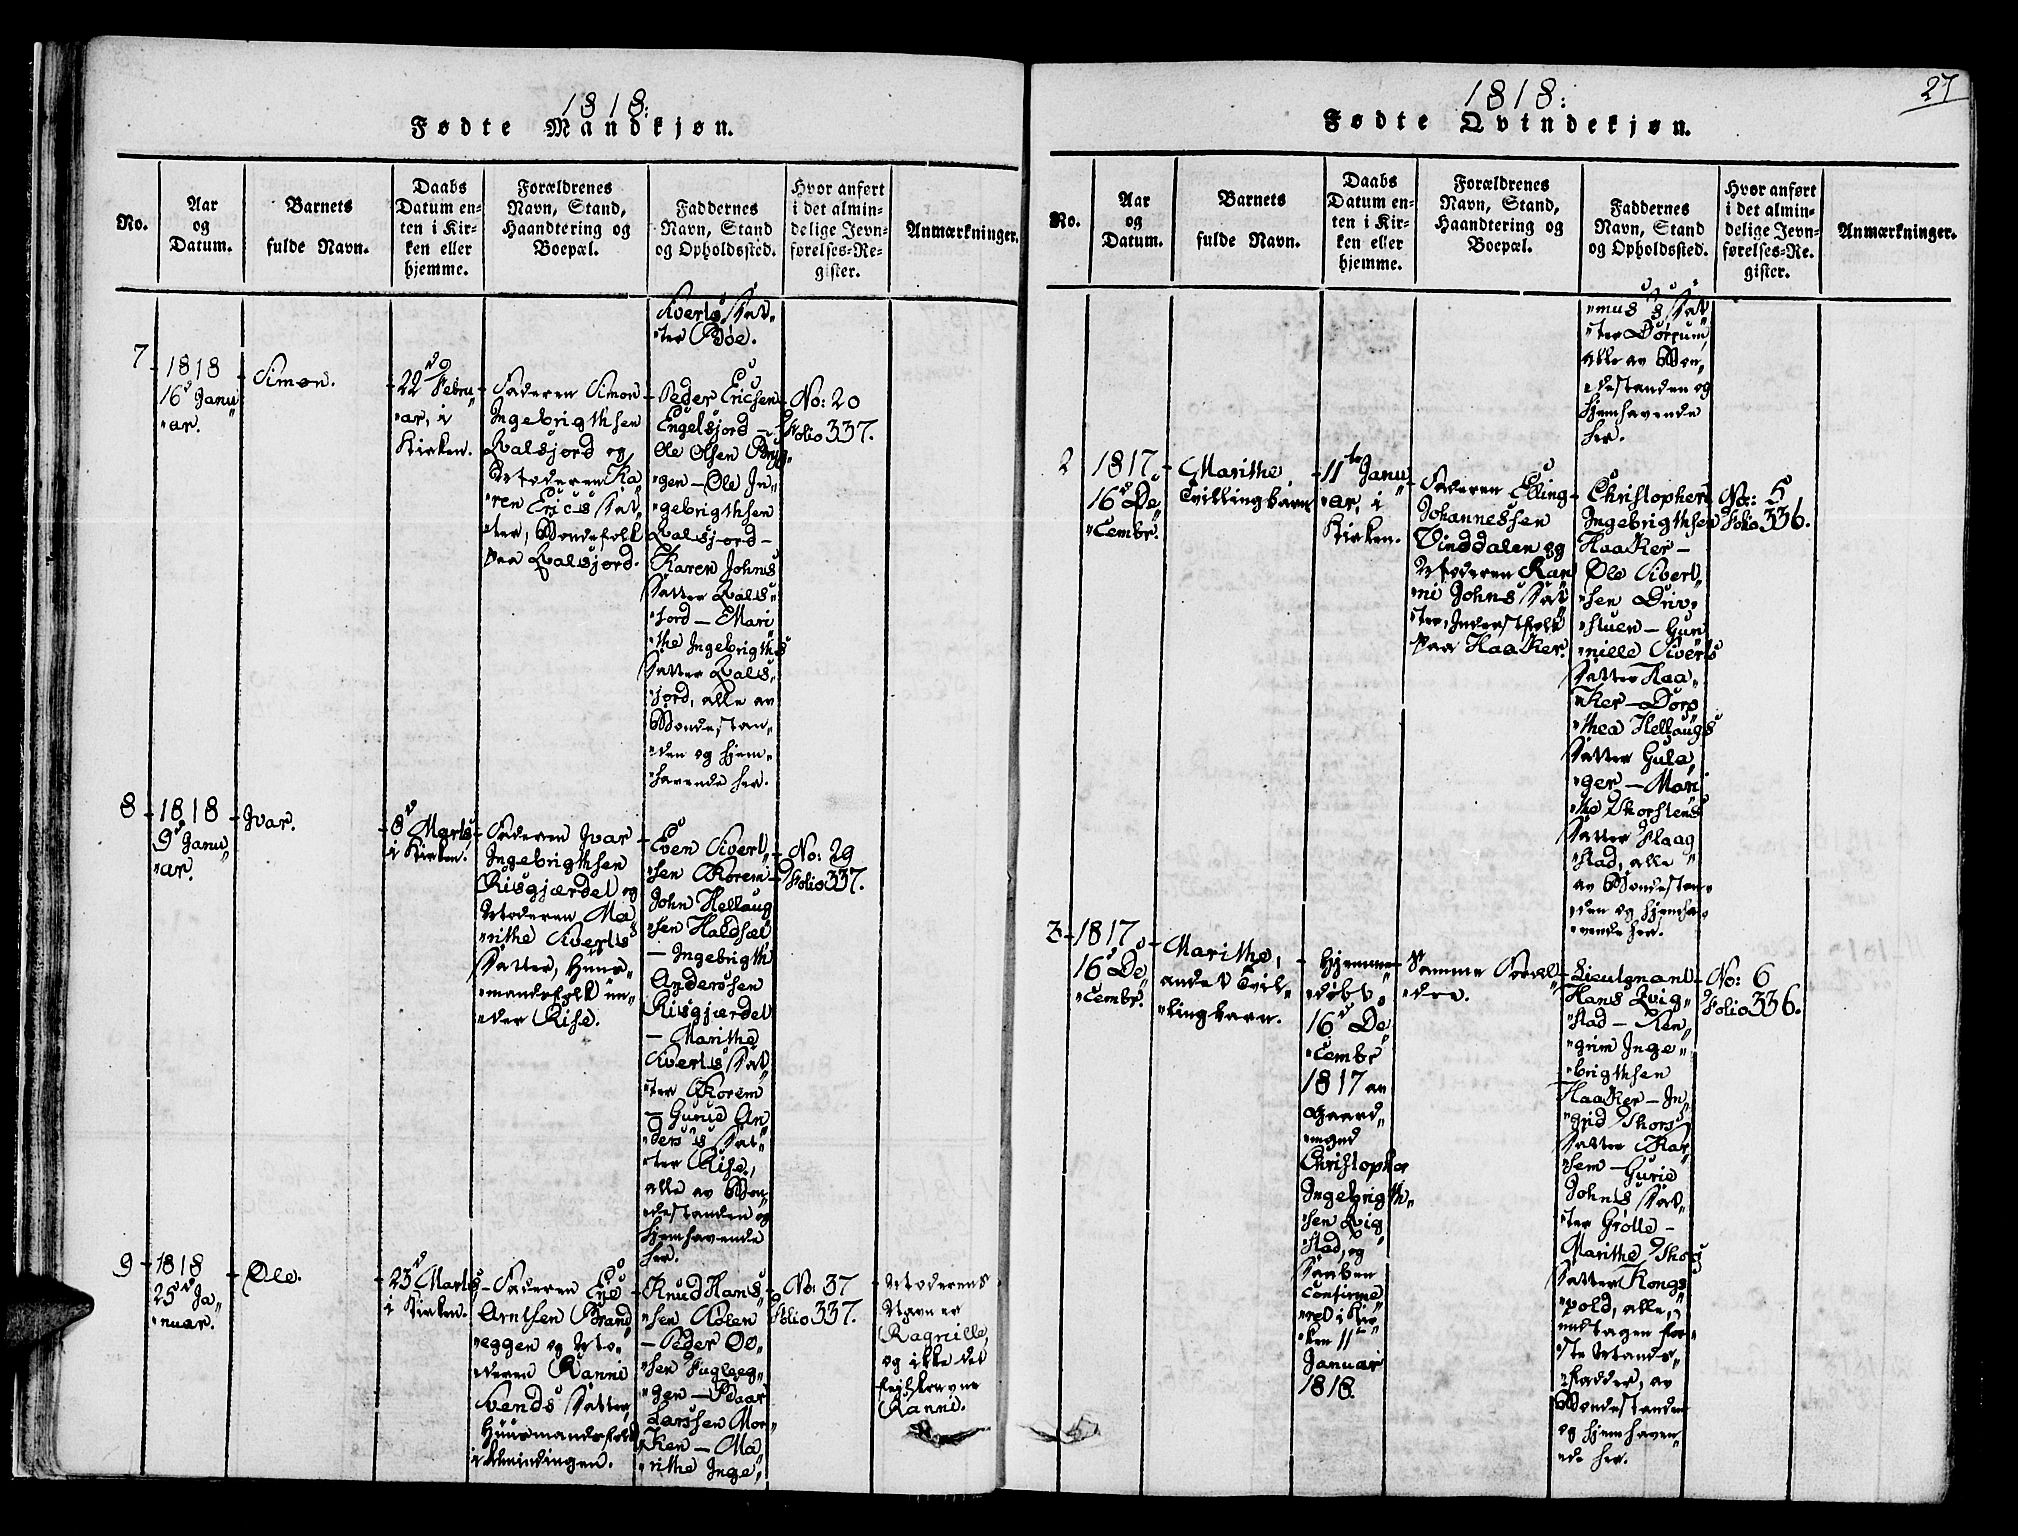 1818:
Fødte Mandkjøn.
No.
Aar
og
Datum.
Barnets
fulde Navn.
Daabs
Datum en-
ten i Kir-
ken eller
hjemme.
Forældrenes
Navn, Stand,
Haandtering og
Boepæl.
Faddernes
Navn, Stand
og Opholdssted.
Hvor anført
i det almin-
delige Jevn-
førelses-Re-
gister.
Anmærkninger.
Siverts Dat„
„ter Bøe.
7
1818
16d Janu„
„ar.
Simon.
22d Febru„
„ar, i
Kirken.
Faderen Simon
Ingebrigthsen
Qvalsjord og
Moderen Ka„
„ren Erics Dat„
„ter, Bondefolk
paa Qvalsjord.
Peder Ericsen
Engelsjord –
Ole Olsen Bryg„
„gen – Ole In„
„gebrigthsen
Qvalsjord –
Karen Johns
Datter Qvals„
„jord – Mari„
„the Ingebrigths
Datter Qvals„
„jord, alle av
Bondestan„
„den og hjem„
„havende her.
No: 20
Folio 337.
8
1818
9d Janu„
„ar.
Ivar.
8d Marts
i Kirken.
Faderen Ivar
Ingebrigthsen
Risgjærdet og
Moderen Ma„
„rithe Siverts
Datter, Huus„
„mandsfolk un„
„der Rise.
Even Sivert„
„sen Korem
John Hellaug„
„sen Haldset
– Ingebrigth
Anderssen
Risgjærdet
– Marithe
Siverts Dat„
„ter Korem
– Gurue An„
„ders's Dat„
„ter Rise,
alle av Bon„
„destanden og
hjemhavende
her.
No: 29
Folio 337.
9
1818
25d Ja„
„nuar.
Ole.
23d Marts
i Kirken.
Faderen Eye
Arntsen Brand„
„eggen og Mo„
„deren Ranni
Svends Datter,
Huusmandsfolk
i Almindingen.
Knud Hans„
„sen Holen
– Peder Oo„
„sen Fugleeg„
„gen – Paar
Larssen Mor„
„ken – Ma„
„rithe Inge„
No: 37
Folio 337.
Moderens
Navn er
Ragnille,
og ikke det
Ranni.
1818:
27
Fødte Qvindekjøn.
No.
Aar
og
Datum.
Barnets
fulde Navn.
Daabs
Datum en-
ten i Kir-
ken eller
hjemme.
Forældrenes
Navn, Stand,
Haandtering og
Boepæl.
Faddernes
Navn, Stand
og Opholdssted.
Hvor anført
i det almin-
delige Jevn-
førelses-Re-
gister.
Anmærkninger.
„mus's Dat„
„ter Dørrum,
alle av Bon„
„destanden og
hjemhavende
her.
2
1817
16d De„
„cembr.
Marithe,
Tvillingbarn
11te Janu„
„ar, i
Kirken.
Faderen Elling
Johannessen
Vinddalen og
Moderen Ran„
„ni Johns Dat„
„ter, Inderstfolk
paa Haaker.
Christopher
Ingebrigthsen
Haaker –
Ole Sivert„
„sen Driv„
„stuen – Gun„
„nille Siverts
Datter Haa„
„ker – Doro„
„thea Hellaugs
Datter Gula„
„ger – Mari„
„the Thorstens
Datter Flaag„
„stad, alle
av Bondestan„
„den og hjemha„
„vende her.
No: 5
Folio 336.
3
1817
16d De„
„cembr.
Marithe,
andet Tvil„
„lingbarn.
Hjemme„
„døbt
16d De„
„cembr
1817 av
Gaard„
„mand
Christopher
Ingebrigth„
„sen Qvig„
„stad, og
Daaben
confirme„
„ret i Kir„
„ken 11te
Januar
1818.
Samme Foræl„
„dre.
Lieutenant
Hans Qvig„
„stad – Ren„
„grim Inge„
„brigthsen
Haaker – In„
„grid Thors
Datter Kar„
„sem – Gurie
Johns Dat„
„ter Grölle –
Marithe Thors
Datter Kongs„
„vold, alle,
undtagen før„
„ste Mands„
„fadder, av
Bondestanden
og hjemhaven„
„de her.
No: 6
Folio 336.